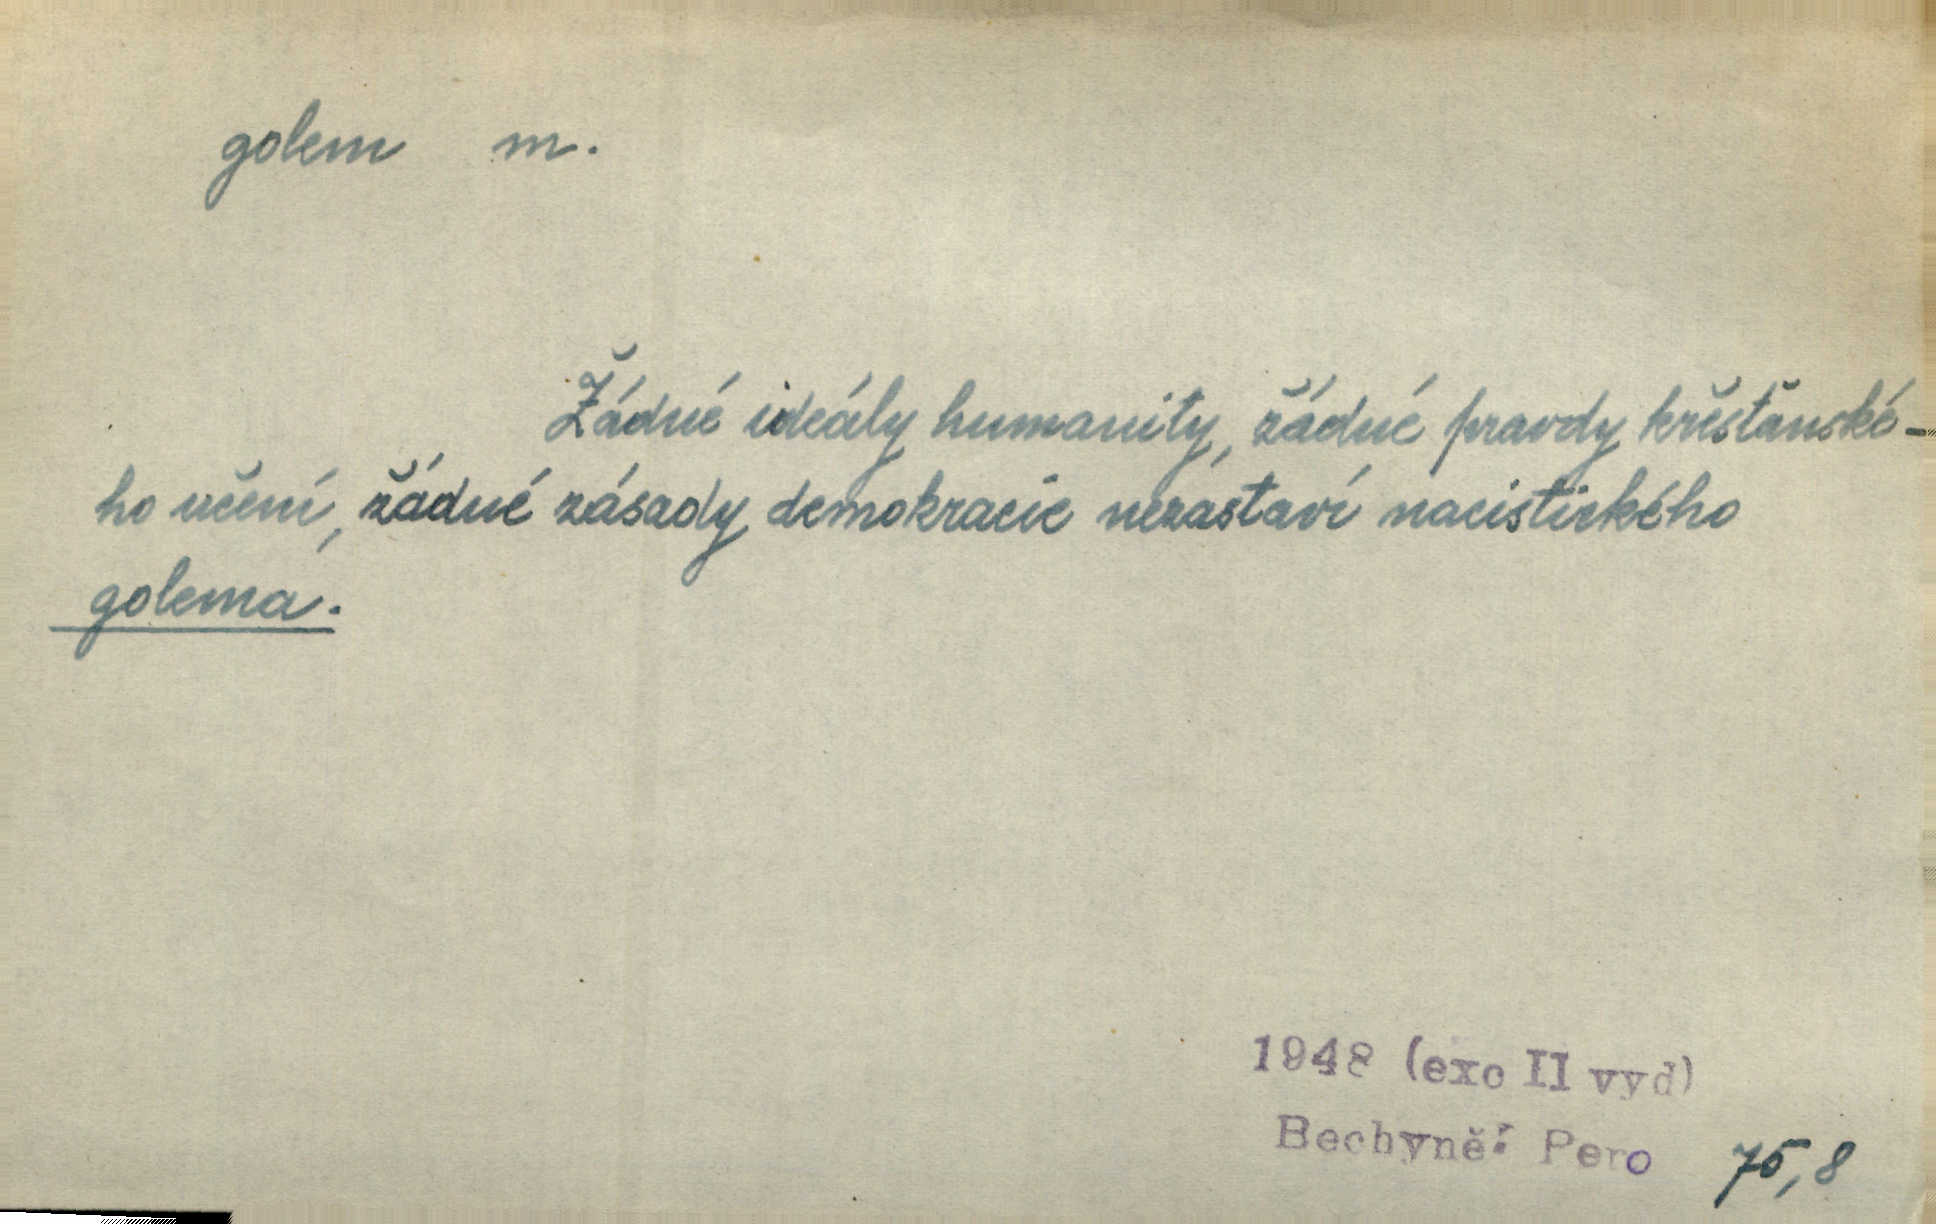 golem m.
Žádné ideály humanity, žádné pravdy křesťanské-
ho učení, žádné zásady demokracie nezastaví nacistického
golema.
1948 (exc II vyd)
Bechyně: Pero 75,8